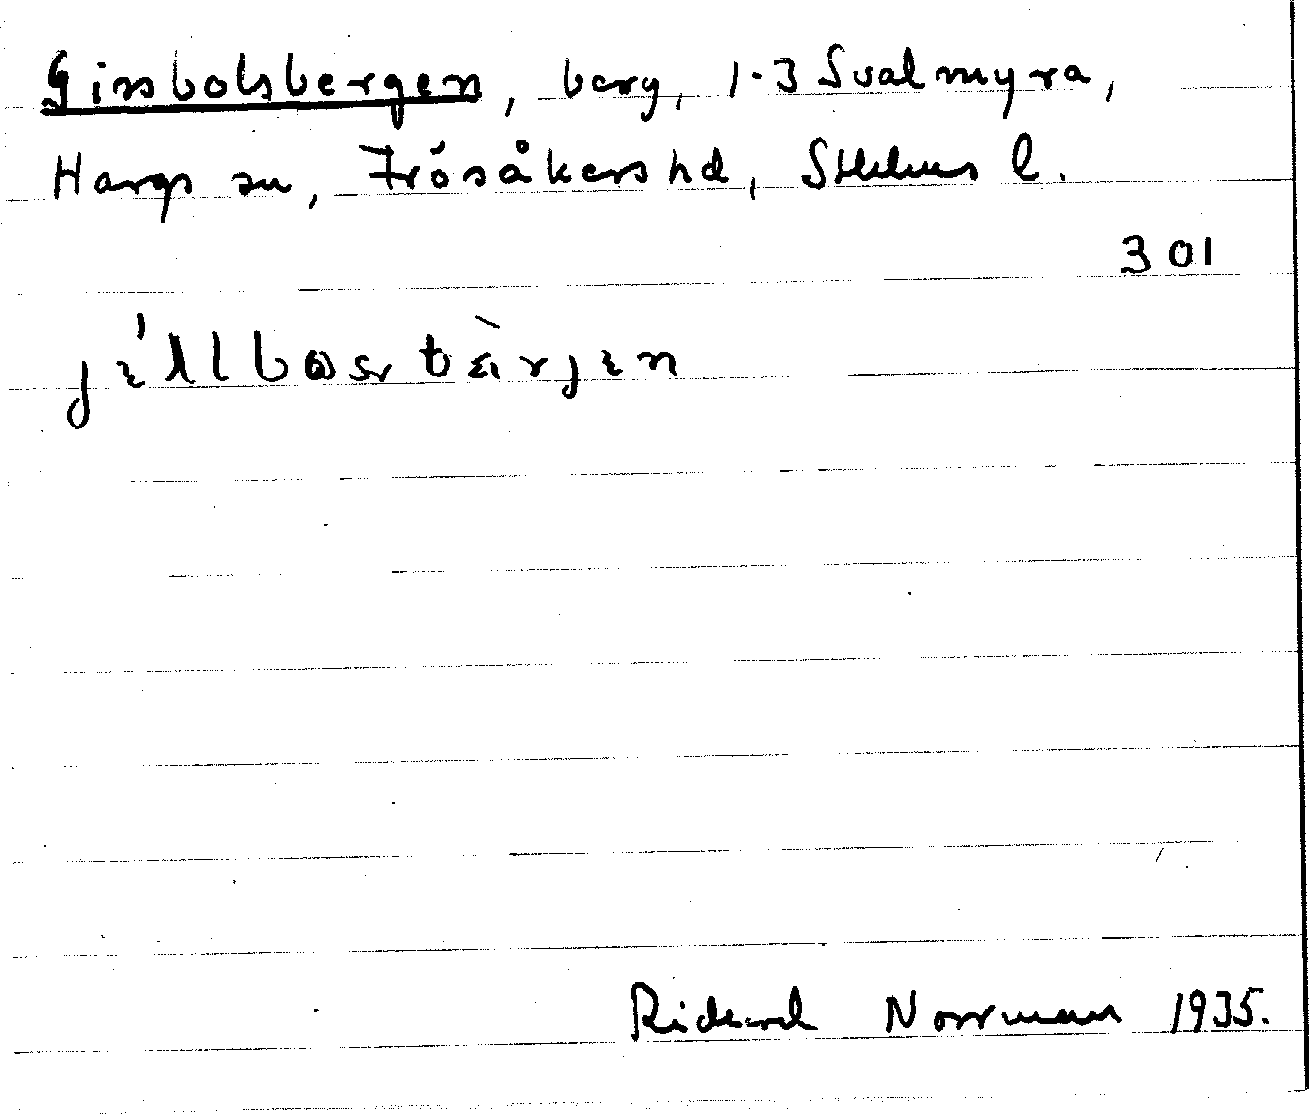 Ginsbolsbergen, berg, 1-3 Svalmyra,
Hargs sn, Frösåkers hd, Sthlms l.
301
Rickard Norrman 1935.